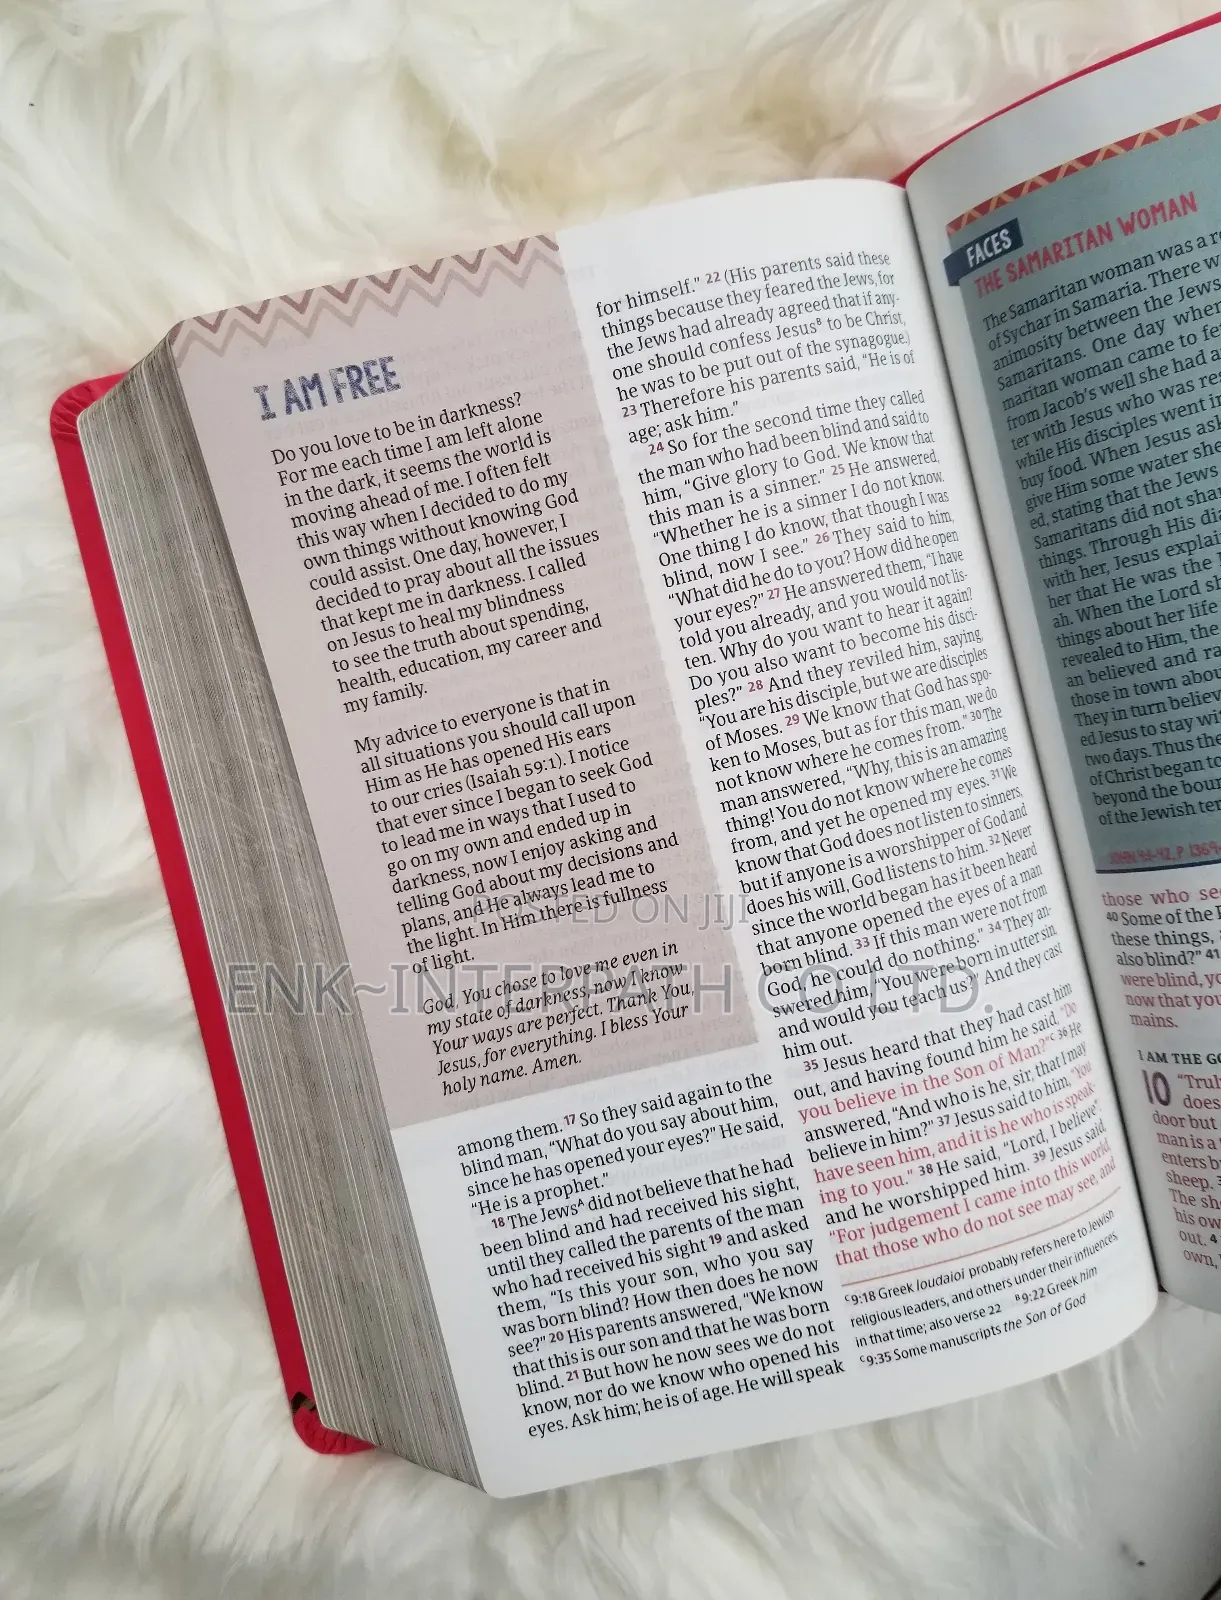 I AM FREE
Do you love to be in darkness?
For me each time I am left alone
in the dark, it seems the world is
moving ahead of me. I often felt
this way when I decided to do my
own things without knowing God
could assist. One day, however, I
decided to pray about all the issues
that kept me in darkness. I called
on Jesus to heal my blindness
to see the truth about spending,
health, education, my career and
my family.
My advice to everyone is that in
all situations you should call upon
Him as He has opened His ears
to our cries (Isaiah 59:1). I notice
that ever since I began to seek God
to lead me in ways that I used to
go on my own and ended up in
darkness, now I enjoy asking and
telling God about my decisions and
plans, and He always lead me to
the light. In Him there is fullness
of light.
God, You chose to love me even in
my state of darkness, now I know
Your ways are perfect. Thank You,
Jesus, for everything. I bless Your
holy name. Amen.
among them. 17 So they said again to the
blind man, “What do you say about him,
since he has opened your eyes?” He said,
“He is a prophet.”
18 The Jewsᴬ did not believe that he had
been blind and had received his sight,
until they called the parents of the man
who had received his sight 19 and asked
them, “Is this your son, who you say
was born blind? How then does he now
see?” 20 His parents answered, “We know
that this is our son and that he was born
blind. 21 But how he now sees we do not
know, nor do we know who opened his
eyes. Ask him; he is of age. He will speak
for himself.” 22 (His parents said these
things because they feared the Jews, for
the Jews had already agreed that if any-
one should confess Jesusᴮ to be Christ,
he was to be put out of the synagogue.)
23 Therefore his parents said, “He is of
age; ask him.”
24 So for the second time they called
the man who had been blind and said to
him, “Give glory to God. We know that
this man is a sinner.” 25 He answered,
“Whether he is a sinner I do not know.
One thing I do know, that though I was
blind, now I see.” 26 They said to him,
“What did he do to you? How did he open
your eyes?” 27 He answered them, “I have
told you already, and you would not lis-
ten. Why do you want to hear it again?
Do you also want to become his disci-
ples?” 28 And they reviled him, saying,
“You are his disciple, but we are disciples
of Moses. 29 We know that God has spo-
ken to Moses, but as for this man, we do
not know where he comes from.” 30 The
man answered, “Why, this is an amazing
thing! You do not know where he comes
from, and yet he opened my eyes. 31 We
know that God does not listen to sinners,
but if anyone is a worshipper of God and
does his will, God listens to him. 32 Never
since the world began has it been heard
that anyone opened the eyes of a man
born blind. 33 If this man were not from
God, he could do nothing.” 34 They an-
swered him, “You were born in utter sin,
and would you teach us?” And they cast
him out.
35 Jesus heard that they had cast him
out, and having found him he said, “Do
you believe in the Son of Man?”ᶜ 36 He
answered, “And who is he, sir, that I may
believe in him?” 37 Jesus said to him, “You
have seen him, and it is he who is speak-
ing to you.” 38 He said, “Lord, I believe”,
and he worshipped him. 39 Jesus said,
“For judgement I came into this world,
that those who do not see may see, and
ᶜ9:18 Greek Ioudaioi probably refers here to Jewish
religious leaders, and others under their influences,
in that time; also verse 22 ᴮ9:22 Greek him
ᶜ9:35 Some manuscripts the Son of God
FACES
THE SAMARITAN WOMAN
The Samaritan woman was a
of Sychar in Samaria. There
animosity between the Jews
Samaritans. One day when
maritan woman came to
from Jacob's well she had a
ter with Jesus who was
while His disciples went in
buy food. When Jesus
give Him some water she
ed, stating that the Jews
Samaritans did not
things. Through His
with her, Jesus
her that He was the
ah. When the Lord
things about her life
revealed to Him, the
an believed and
those in town
They in turn
ed Jesus to stay
two days. Thus the
of Christ began to
beyond the
of the Jewish
JOHN 4:1-42, P. 1369
those who
40 Some of the
these things,
also blind?” 41
were blind,
now that
mains.
I AM THE
10
does
door but
man is a
enters
sheep.
The
his
out. 4
own,
POSTED ON JIJI
ENK~INTERPATH CO LTD.